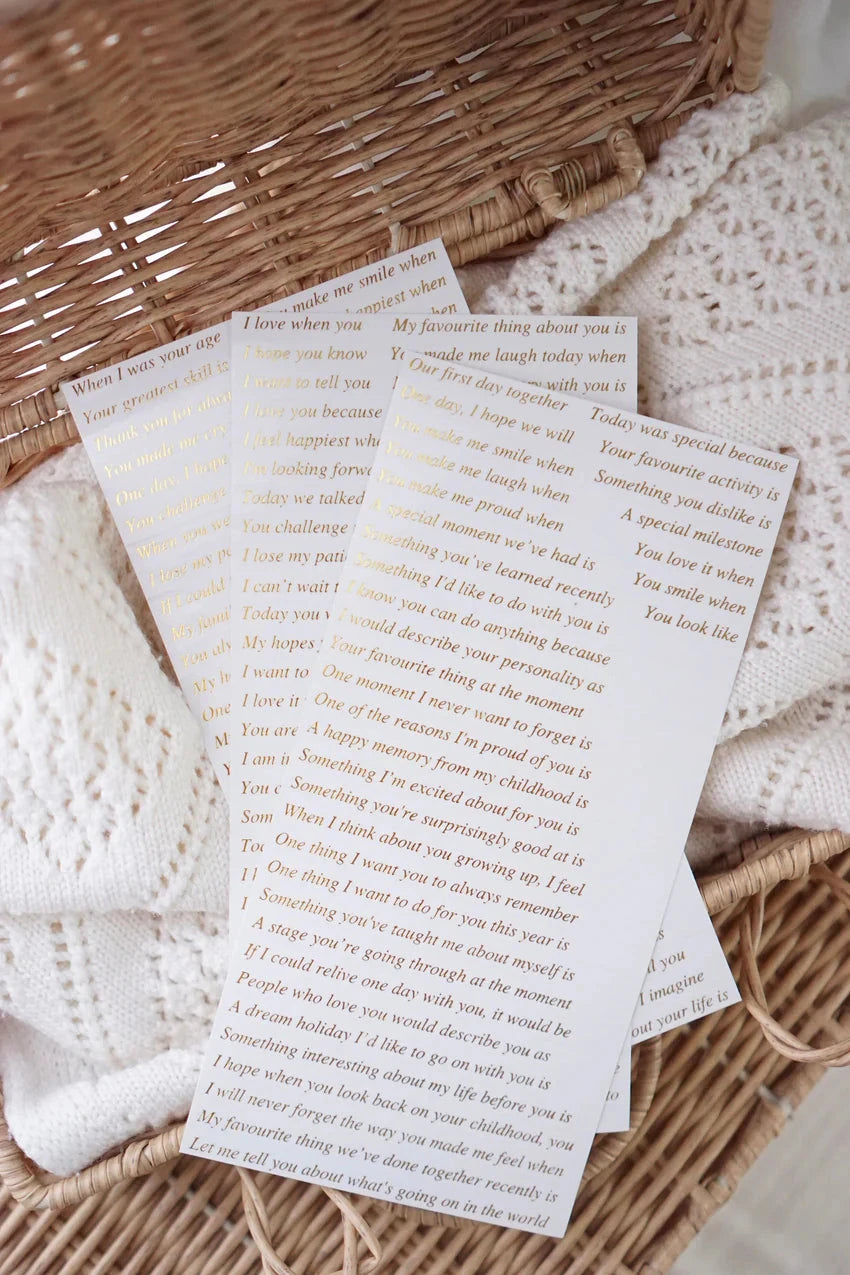 make me smile when
happiest when
When I was your age
Your greatest skill is
Thank you for always
You made me cry
One day, I hope
You challenge
When you we
I lose my pa
If I could
My fami
You alw
My h
One
M
I love when you
I hope you know
I want to tell you
I love you because
I feel happiest whe
I'm looking forwa
Today we talked
You challenge
I lose my pati
I can't wait t
Today you
My hopes
I want to
I love it
You are
I am i
You
Som
Too
I
I
My favourite thing about you is
You made me laugh today when
with you is
Our first day together
One day, I hope we will
You make me smile when
You make me laugh when
You make me proud when
A special moment we've had is
Something you've learned recently
Something I'd like to do with you is
I know you can do anything because
I would describe your personality as
Your favourite thing at the moment
One moment I never want to forget is
One of the reasons I'm proud of you is
A happy memory from my childhood is
Something I'm excited about for you is
Something you're surprisingly good at is
When I think about you growing up, I feel
One thing I want you to always remember
One thing I want to do for you this year is
Something you've taught me about myself is
A stage you're going through at the moment
If I could relive one day with you, it would be
People who love you would describe you as
A dream holiday I'd like to go on with you is
Something interesting about my life before you is
I hope when you look back on your childhood, you
I will never forget the way you made me feel when
My favourite thing we've done together recently is
Let me tell you about what's going on in the world
Today was special because
Your favourite activity is
Something you dislike is
A special milestone
You love it when
You smile when
You look like
s
you
I imagine
out your life is
to